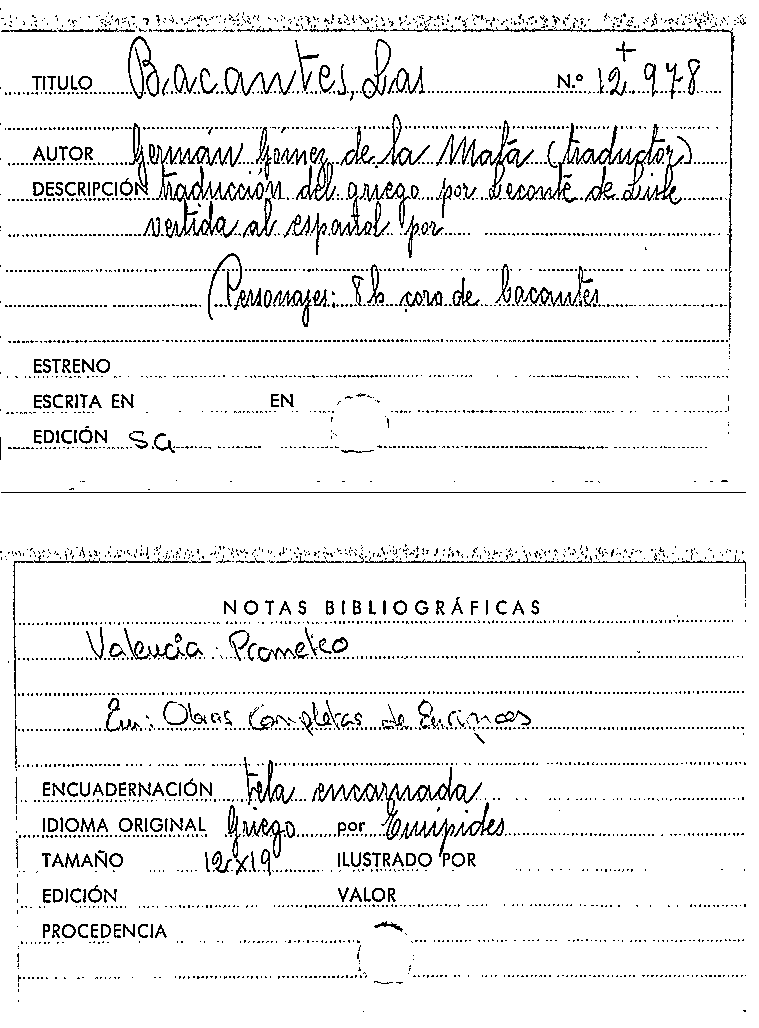 TITULO Bacantes, Las N.º 12+ 978
AUTOR Germán Gómez de la Mata (traductor)
DESCRIPCIÓN traducción del griego por Leconte de Lisle
vertida al español por
Personajes: 8 h coro de bacantes
ESTRENO
ESCRITA EN EN
EDICIÓN S.a
NOTAS BIBLIOGRÁFICAS
Valencia: Prometeo
En: Obras Completas de Eurípides
ENCUADERNACIÓN tela encarnada
IDIOMA ORIGINAL Griego por Eurípides
TAMAÑO 12x19 ILUSTRADO POR
EDICIÓN VALOR
PROCEDENCIA